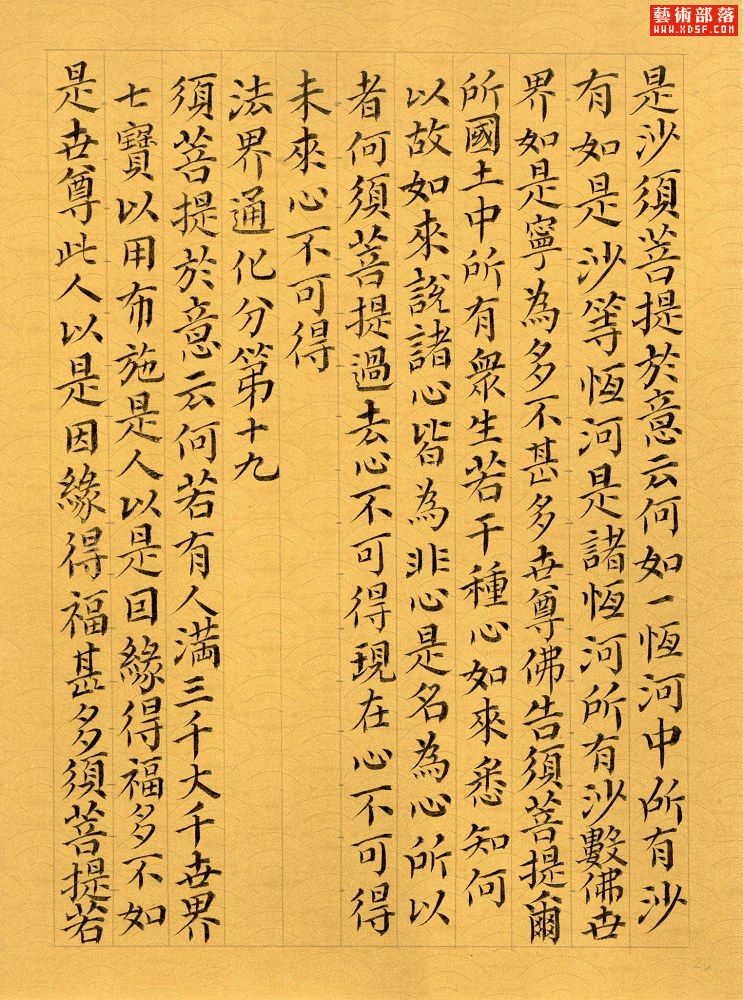 藝術部落
www.XDSF.com
是沙須菩提於意云何如一恆河中所有沙
有如是沙等恆河是諸恆河所有沙數佛世
界如是寧為多不甚多世尊佛告須菩提爾
所國土中所有眾生若干種心如來悉知何
以故如來說諸心皆為非心是名為心所以
者何須菩提過去心不可得現在心不可得
未來心不可得
法界通化分第十九
須菩提於意云何若有人滿三千大千世界
七寶以用布施是人以是因緣得福多不如
是世尊此人以是因緣得福甚多須菩提若